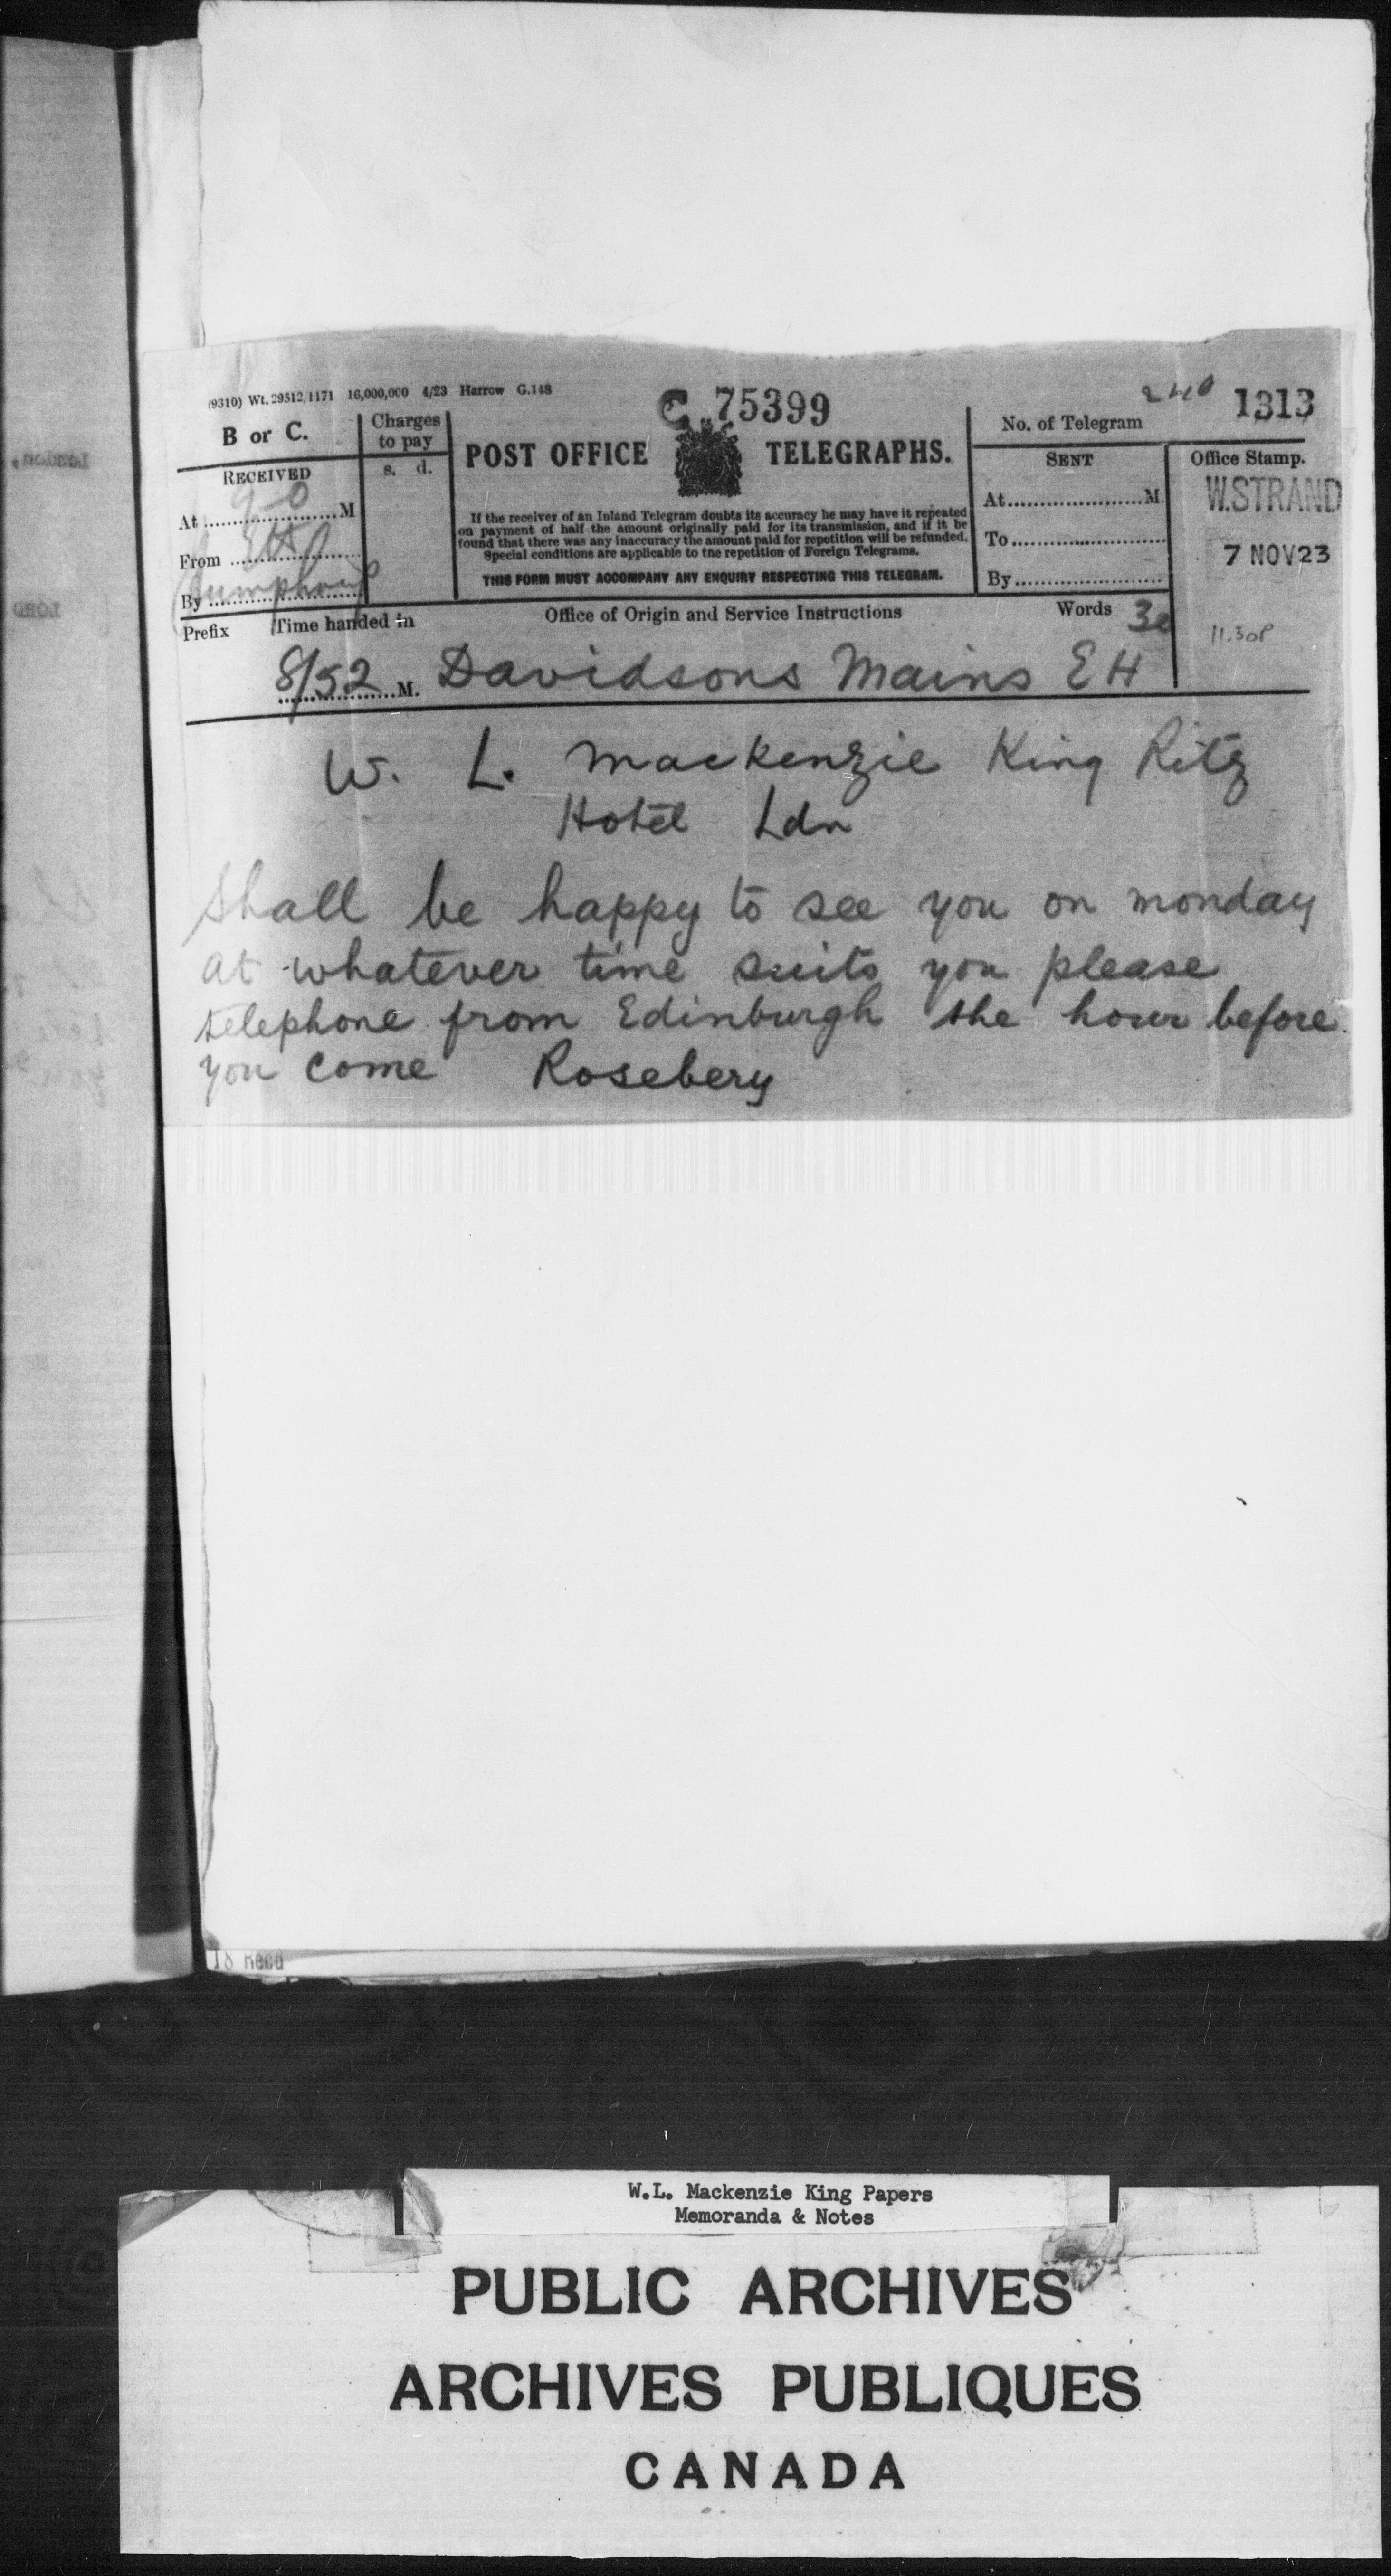 (9310) Wt. 29512/1171 16,000,000 4/23 Harrow G.148
C 75399
240 1313
B or C.
Charges to pay
s. d.
POST OFFICE TELEGRAPHS.
No. of Telegram
RECEIVED
At 9-0 M
From
By
If the receiver of an Inland Telegram doubts its accuracy he may have it repeated
on payment of half the amount originally paid for its transmission, and if it be
found that there was any inaccuracy the amount paid for repetition will be refunded.
Special conditions are applicable to the repetition of Foreign Telegrams.
THIS FORM MUST ACCOMPANY ANY ENQUIRY RESPECTING THIS TELEGRAM.
SENT
At M.
To
By
Office Stamp.
W.STRAND
7 NOV 23
11.30P
Prefix Time handed in Office of Origin and Service Instructions Words
8/52 M. Davidsons Mains EH
W. L. Mackenzie King Ritz
Hotel Ldn
Shall be happy to see you on monday
at whatever time suits you please
telephone from Edinburgh the hour before
you come Rosebery
18 Recd
W.L. Mackenzie King Papers
Memoranda & Notes
PUBLIC ARCHIVES
ARCHIVES PUBLIQUES
CANADA